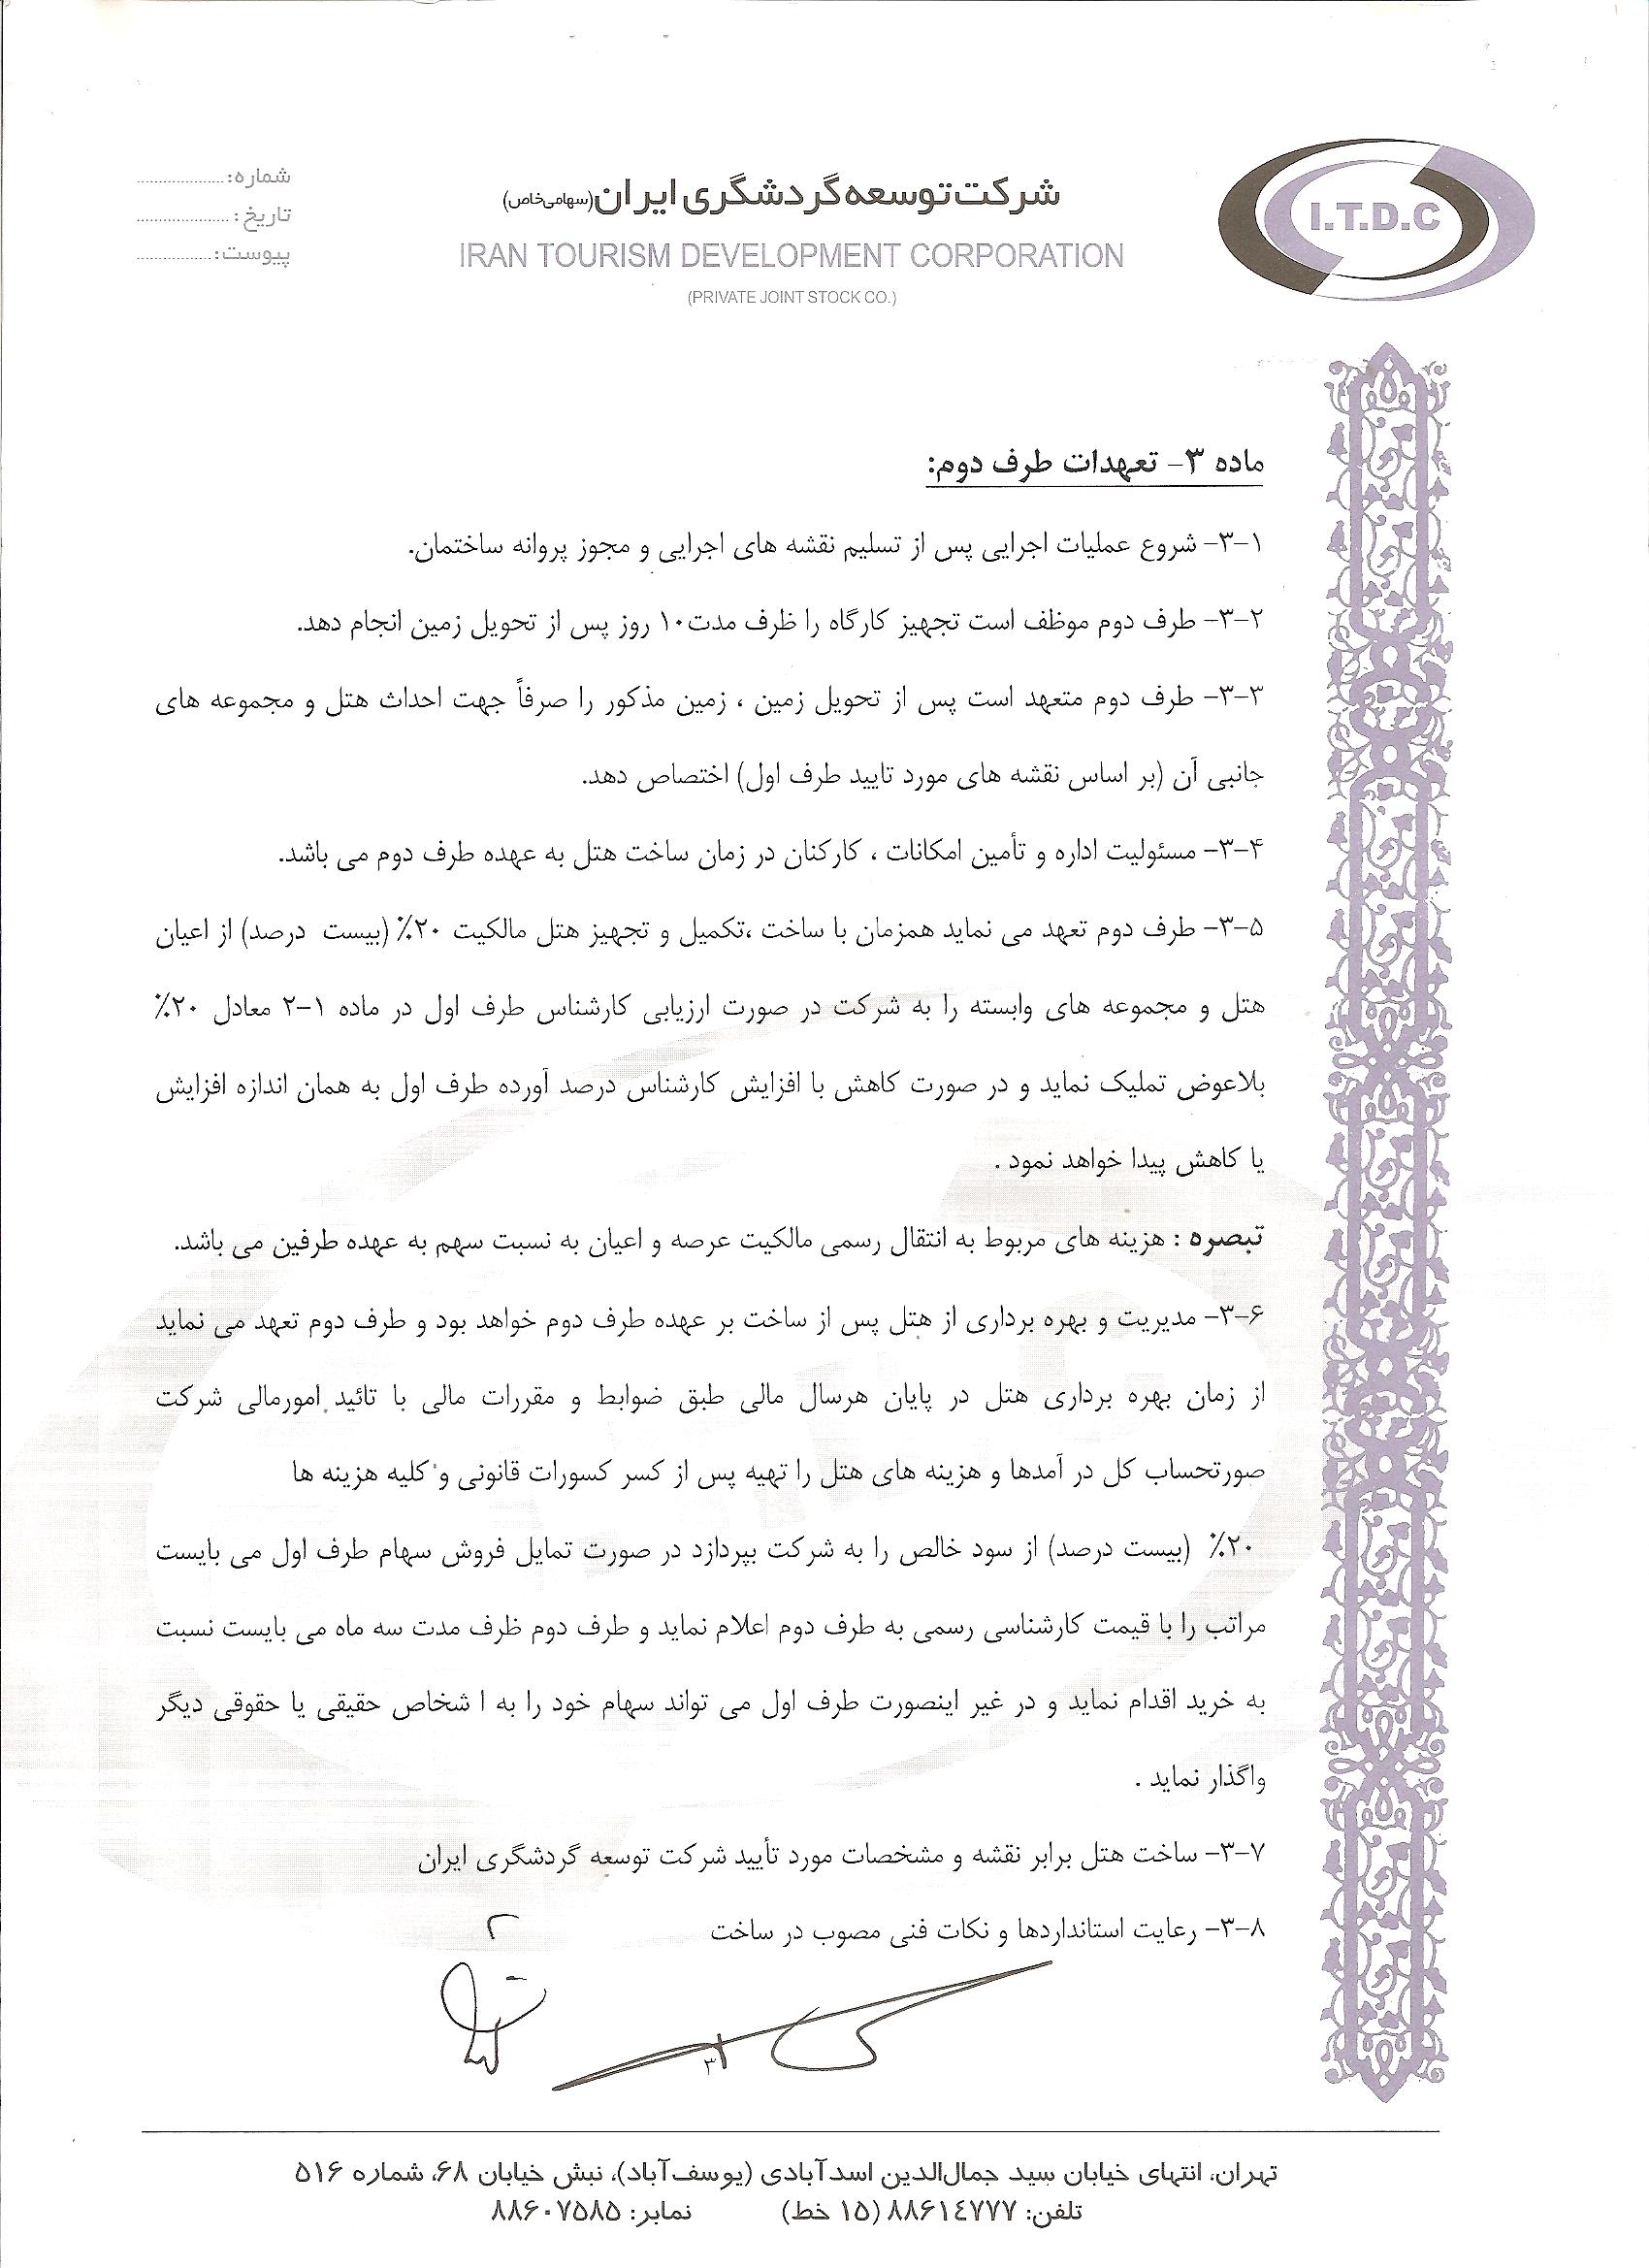 I.T.D.C
شرکت توسعه گردشگری ایران (سهامی خاص)
IRAN TOURISM DEVELOPMENT CORPORATION
(PRIVATE JOINT STOCK CO.)
شماره: ....................
تاریخ: ....................
پیوست: .................
ماده ۳- تعهدات طرف دوم:
۳-۱- شروع عملیات اجرایی پس از تسلیم نقشه های اجرایی و مجوز پروانه ساختمان.
۳-۲- طرف دوم موظف است تجهیز کارگاه را ظرف مدت۱۰ روز پس از تحویل زمین انجام دهد.
۳-۳- طرف دوم متعهد است پس از تحویل زمین ، زمین مذکور را صرفاً جهت احداث هتل و مجموعه های
جانبی آن (بر اساس نقشه های مورد تایید طرف اول) اختصاص دهد.
۳-۴- مسئولیت اداره و تأمین امکانات ، کارکنان در زمان ساخت هتل به عهده طرف دوم می باشد.
۳-۵- طرف دوم تعهد می نماید همزمان با ساخت ،تکمیل و تجهیز هتل مالکیت ۲۰٪ (بیست درصد) از اعیان
هتل و مجموعه های وابسته را به شرکت در صورت ارزیابی کارشناس طرف اول در ماده ۱-۲ معادل ۲۰٪
بلاعوض تملیک نماید و در صورت کاهش با افزایش کارشناس درصد آورده طرف اول به همان اندازه افزایش
یا کاهش پیدا خواهد نمود .
تبصره : هزینه های مربوط به انتقال رسمی مالکیت عرصه و اعیان به نسبت سهم به عهده طرفین می باشد.
۳-۶- مدیریت و بهره برداری از هتل پس از ساخت بر عهده طرف دوم خواهد بود و طرف دوم تعهد می نماید
از زمان بهره برداری هتل در پایان هرسال مالی طبق ضوابط و مقررات مالی با تائید امورمالی شرکت
صورتحساب کل در آمدها و هزینه های هتل را تهیه پس از کسر کسورات قانونی و کلیه هزینه ها
۲۰٪ (بیست درصد) از سود خالص را به شرکت بپردازد در صورت تمایل فروش سهام طرف اول می بایست
مراتب را با قیمت کارشناسی رسمی به طرف دوم اعلام نماید و طرف دوم ظرف مدت سه ماه می بایست نسبت
به خرید اقدام نماید و در غیر اینصورت طرف اول می تواند سهام خود را به ا شخاص حقیقی یا حقوقی دیگر
واگذار نماید .
۳-۷- ساخت هتل برابر نقشه و مشخصات مورد تأیید شرکت توسعه گردشگری ایران
۳-۸- رعایت استانداردها و نکات فنی مصوب در ساخت
۳
تهران، انتهای خیابان سید جمال‌الدین اسدآبادی (یوسف‌آباد)، نبش خیابان ۶۸، شماره ۵۱۶
تلفن: ۸۸۶۱٤۷۷۷ (۱۵ خط) نمابر: ۸۸۶۰۷۵۸۵